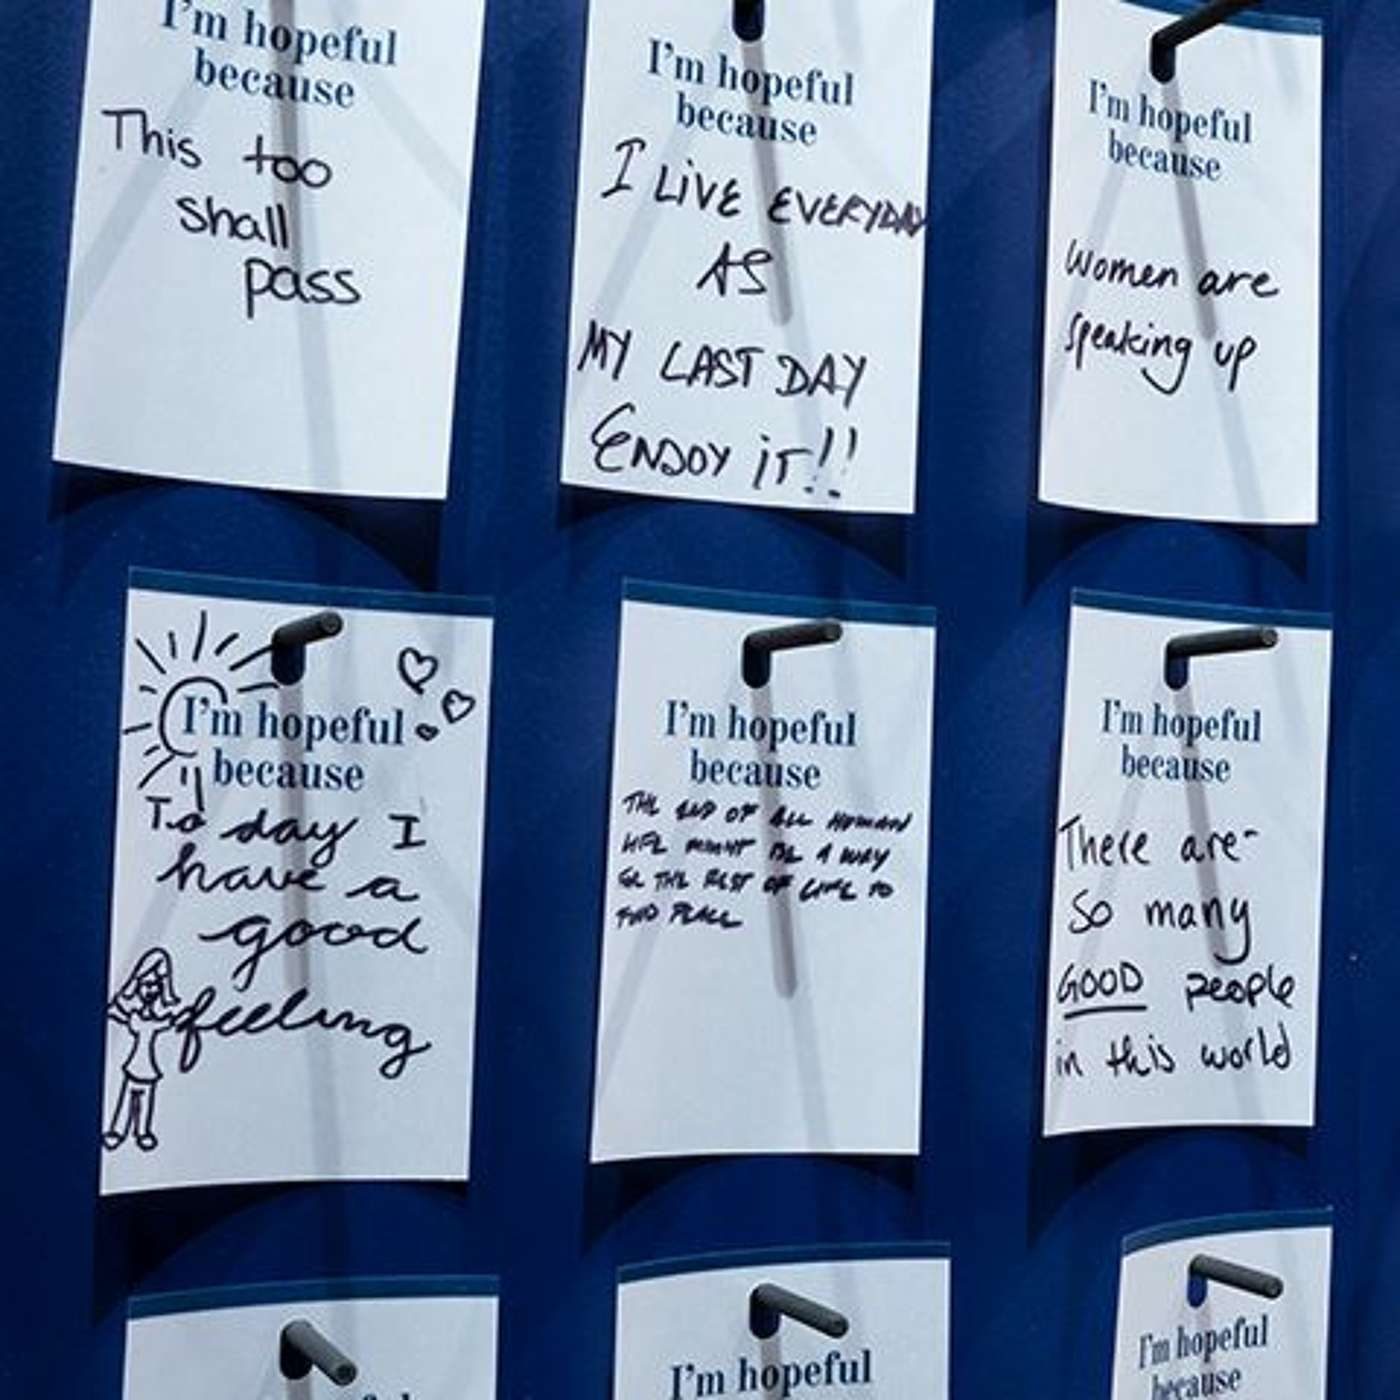 I'm hopeful
because
This too
shall
pass
I'm hopeful
because
I LiVE EVERYDAY
AS
MY LAST DAY
ENJOY iT!!
I'm hopeful
because
Women are
speaking up
I'm hopeful
because
Today I
have a
good
feeling
I'm hopeful
because
THE END OF ALL HUMAN
LIFE MIGHT BE A WAY
THE REST OF LIFE TO
FIND PEACE
I'm hopeful
because
There are
So many
GOOD people
in this world
I'm hopeful
I'm hopeful
because